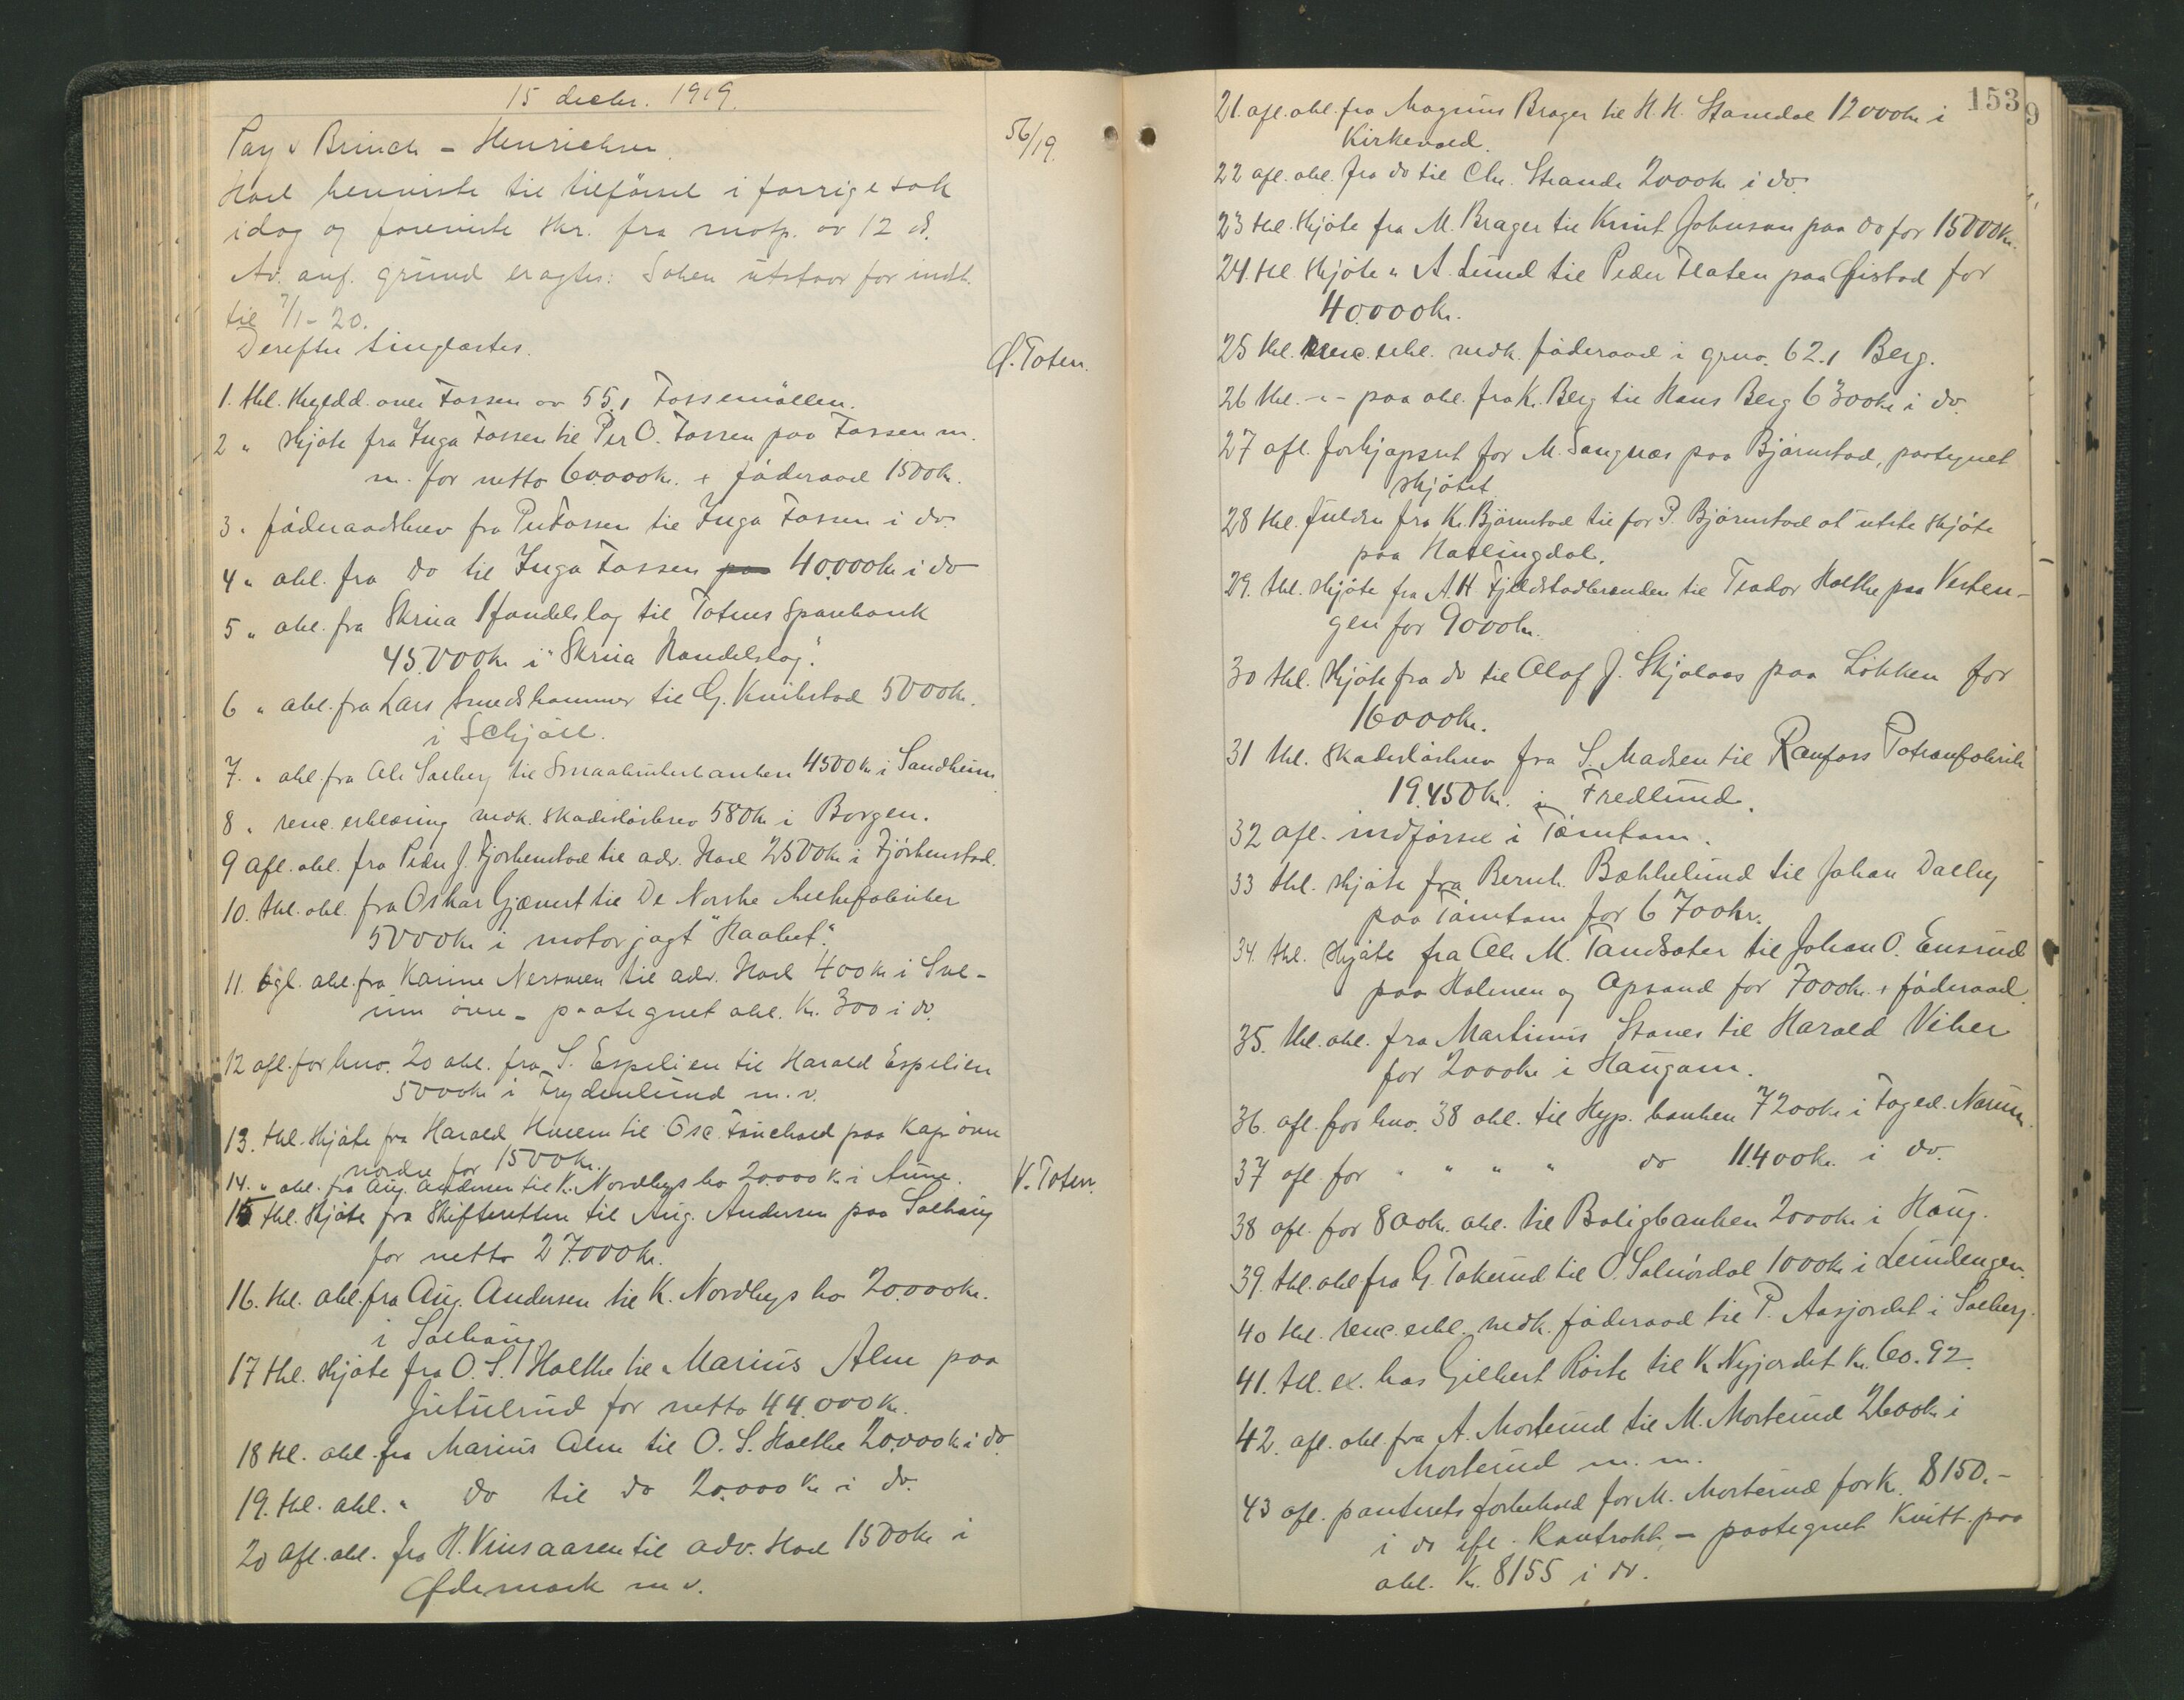 15 decbr. 1919.
Pay & Brinch - Henrichsen.
56/19.
Hoel henviste til tilførsel i forrige sak
idag og foreviste skr. fra motp. av 12 ds.
Av. anf. grund eragtes: Saken utstaar for indk.
til 7/1-20.
Derefter tinglæstes.
Ø. Toten.
1. thl. skyldd. over Fossen av 55,1 Fossemøllen.
2 " skjøte fra Inga Fossen til Per O. Fossen paa Fossen m.
m. for netto 60.000 kr. + føderaad 1500 kr.
3. føderaadsbrev fra Per Fossen til Inga Fossen i do.
4 " obl. fra do til Inga Fossen paa 40.000 kr i do
5 " obl. fra Skreia Handelslag til Totens Sparebank
45.000 kr i "Skreia Handelslag".
6 " obl. fra Lars Smedshammer til G. Knibstad 5000 kr.
i
7. " obl. fra Ole Solberg til Smaabrukerbanken 4500 kr i Sandheim
8 " renc. erklæring vedk. skadesløsbrev 580 kr i Borgen.
9 afl. obl. fra Peder J. Fjørkenstad til adv. Hoel 2500 kr i Fjørkenstad.
10. thl. obl. fra Oskar Gjævert til De Norske Melkefabriker
5000 kr i motorjagt "Haabet".
11. tgl. obl. fra Karine Nersveen til adv. Hoel 400 kr i Sve-
um øvre - paategnet obl. Kr. 300 i do.
12 afl. for hno. 20 obl. fra S. Espelien til Harald Espelien
5000 kr i Frydenlund m. v.
13. thl. skjøte fra Harald til Osc. paa Kap øvre
nordre for 1500 kr.
14. " obl. fra Aug. Andersen til K. Nordbys bo 20.000 kr i
V. Toten.
15 thl. skjøte fra Skifteretten til Aug. Andersen paa Solhaug
for netto 27.000 kr.
16. thl. obl. fra Aug. Andersen til K. Nordbys bo 20.000 kr.
i Solhaug
17 thl. skjøte fra O. S. Holthe til Marius Alm paa
Jutulrud for netto 44.000 kr.
18 thl. obl. fra Marius Alm til O. S. Holthe 20.000 kr i do
19. thl. obl. " do til do 20.000 kr i do.
20 afl. obl. fra H. Vinsaasen til adv. Hoel 1500 kr i
Ødemark m v.
153
9
21. afl. obl. fra Magnus Brager til H. H. Stamdal 12000 kr i
Kirkevold.
22 afl. obl. fra do til Chr. Strande 2000 kr i do.
23 thl. skjøte fra M. Brager til Knut Johnsen paa do for 15000 kr.
24. thl. skjøte " A. Lund til Peder Flaten paa Øistad for
40.000 kr.
25 thl. renc. erkl. vedk. føderaad i grno. 62,1 Berg.
26 thl. -"- paa obl. fra K. Berg til Hans Berg 6300 kr i do.
27 afl. forkjøpsret for M. Sangnæs paa Bjørnstad, paategnet
skjøtet.
28 thl. fuldm fra K. Bjørnstad til for P. Bjørnstad at utste skjøte
paa Hallingdal.
29. thl. skjøte fra A. H. Fjeldstadbrenden til Teodor Holthe paa Vesten-
gen for 9000 kr.
30 thl. skjøte fra do til Olaf J. Skjolaas paa Løkken for
16000 kr.
31 thl. skadesløsbrev fra S. Madsen til Raufoss Patronfabrik
19.450 kr. i Fredlund.
32 afl. indførsel i Tømtom.
33 thl. skjøte fra Bernh. Bækkelund til Johan Dalby
paa Tømtom for 6700 kr.
34. thl. skjøte fra Ole M. Tandsæter til Johan O. Ensrud
paa Holmen og Opsand for 7000 kr. + føderaad.
35. thl. obl. fra Martinus Stanes til Harald Viker
for 2000 kr i Haugom.
36. afl. for hno. 38 obl. til Hyp. banken 7200 kr i Faged. Narum.
37 afl. for " " " " do 11.400 kr. i do.
38 afl. for 800 kr. obl. til Boligbanken 2000 kr i Haug.
39. thl. obl fra G. Tokerud til O. Solnørdal 1000 kr i Lundengen.
40 thl. renc. erkl. vedk. føderaad til P. Aasjordet i Solberg.
41. thl. ex. hos Gilbert Røste til K. Nyjordet kr. 60.92.
42. afl. obl. fra A. Morterud til M. Morterud 2600 kr i
Morterud m. m.
43 afl. panterets forbehold for M. Morterud for k. 8150.-
i do ifl. Kontrakt, - paategnet Kvitt. paa
obl. Kr. 8155 i do.